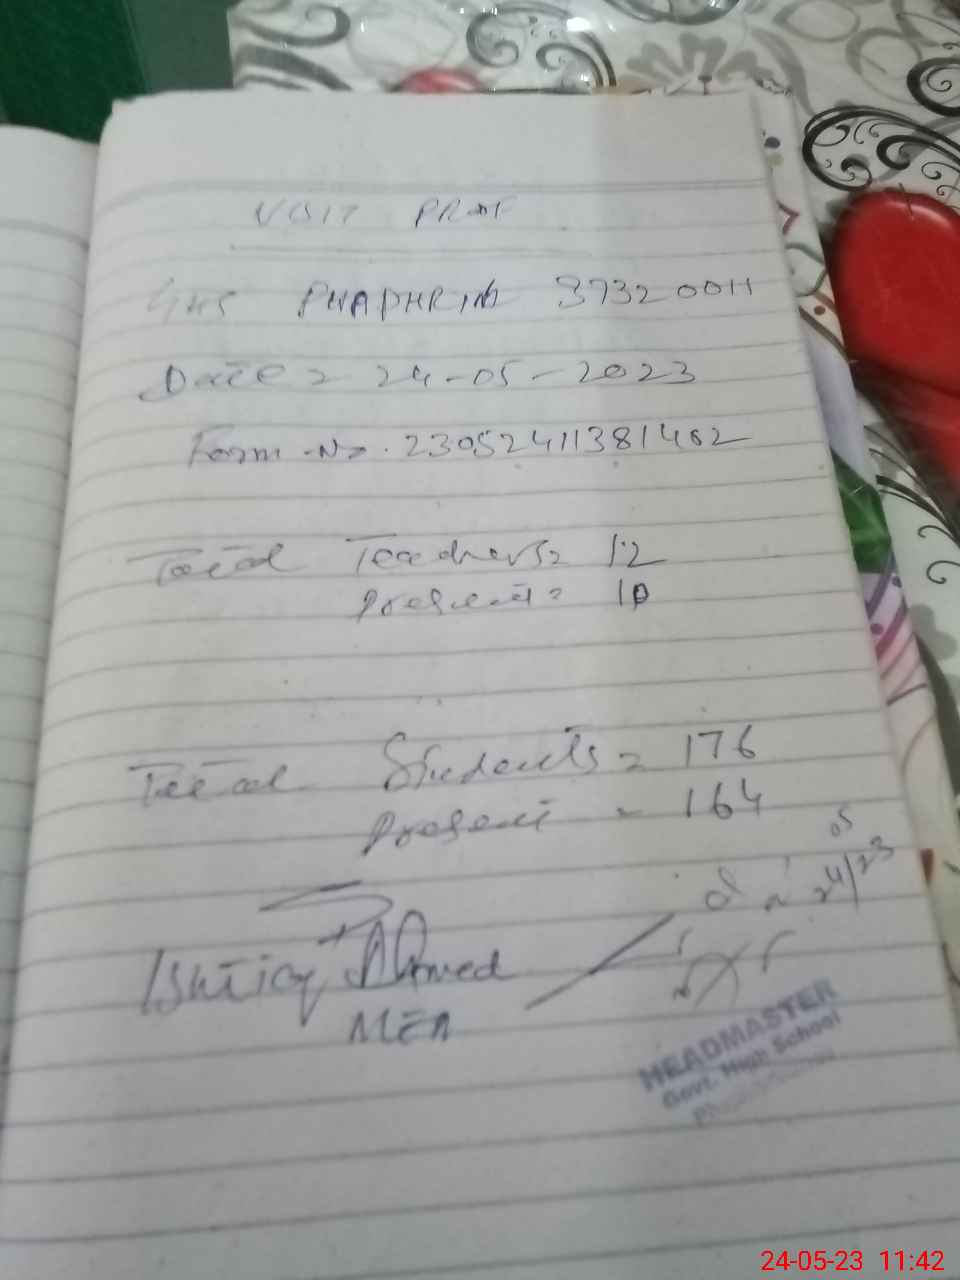 VISIT PROOF
GHS PHAPHRIL 37320011
Date = 24-05-2023
Form No. 23052411381462
Total Teachers = 12
Present = 10
Total Students = 176
Present = 164
05
24/23
Ishtiaq Ahmed
MEA
HEADMASTER
Govt. High School
24-05-23 11:42